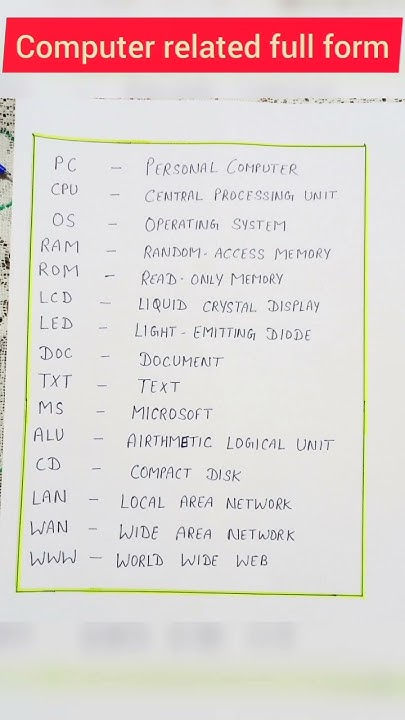 Computer related full form
PC - PERSONAL COMPUTER
CPU - CENTRAL PROCESSING UNIT
OS - OPERATING SYSTEM
RAM - RANDOM-ACCESS MEMORY
ROM - READ-ONLY MEMORY
LCD - LIQUID CRYSTAL DISPLAY
LED - LIGHT-EMITTING DIODE
DOC - DOCUMENT
TXT - TEXT
MS - MICROSOFT
ALU - AIRTHMETIC LOGICAL UNIT
CD - COMPACT DISK
LAN - LOCAL AREA NETWORK
WAN - WIDE AREA NETWORK
WWW - WORLD WIDE WEB